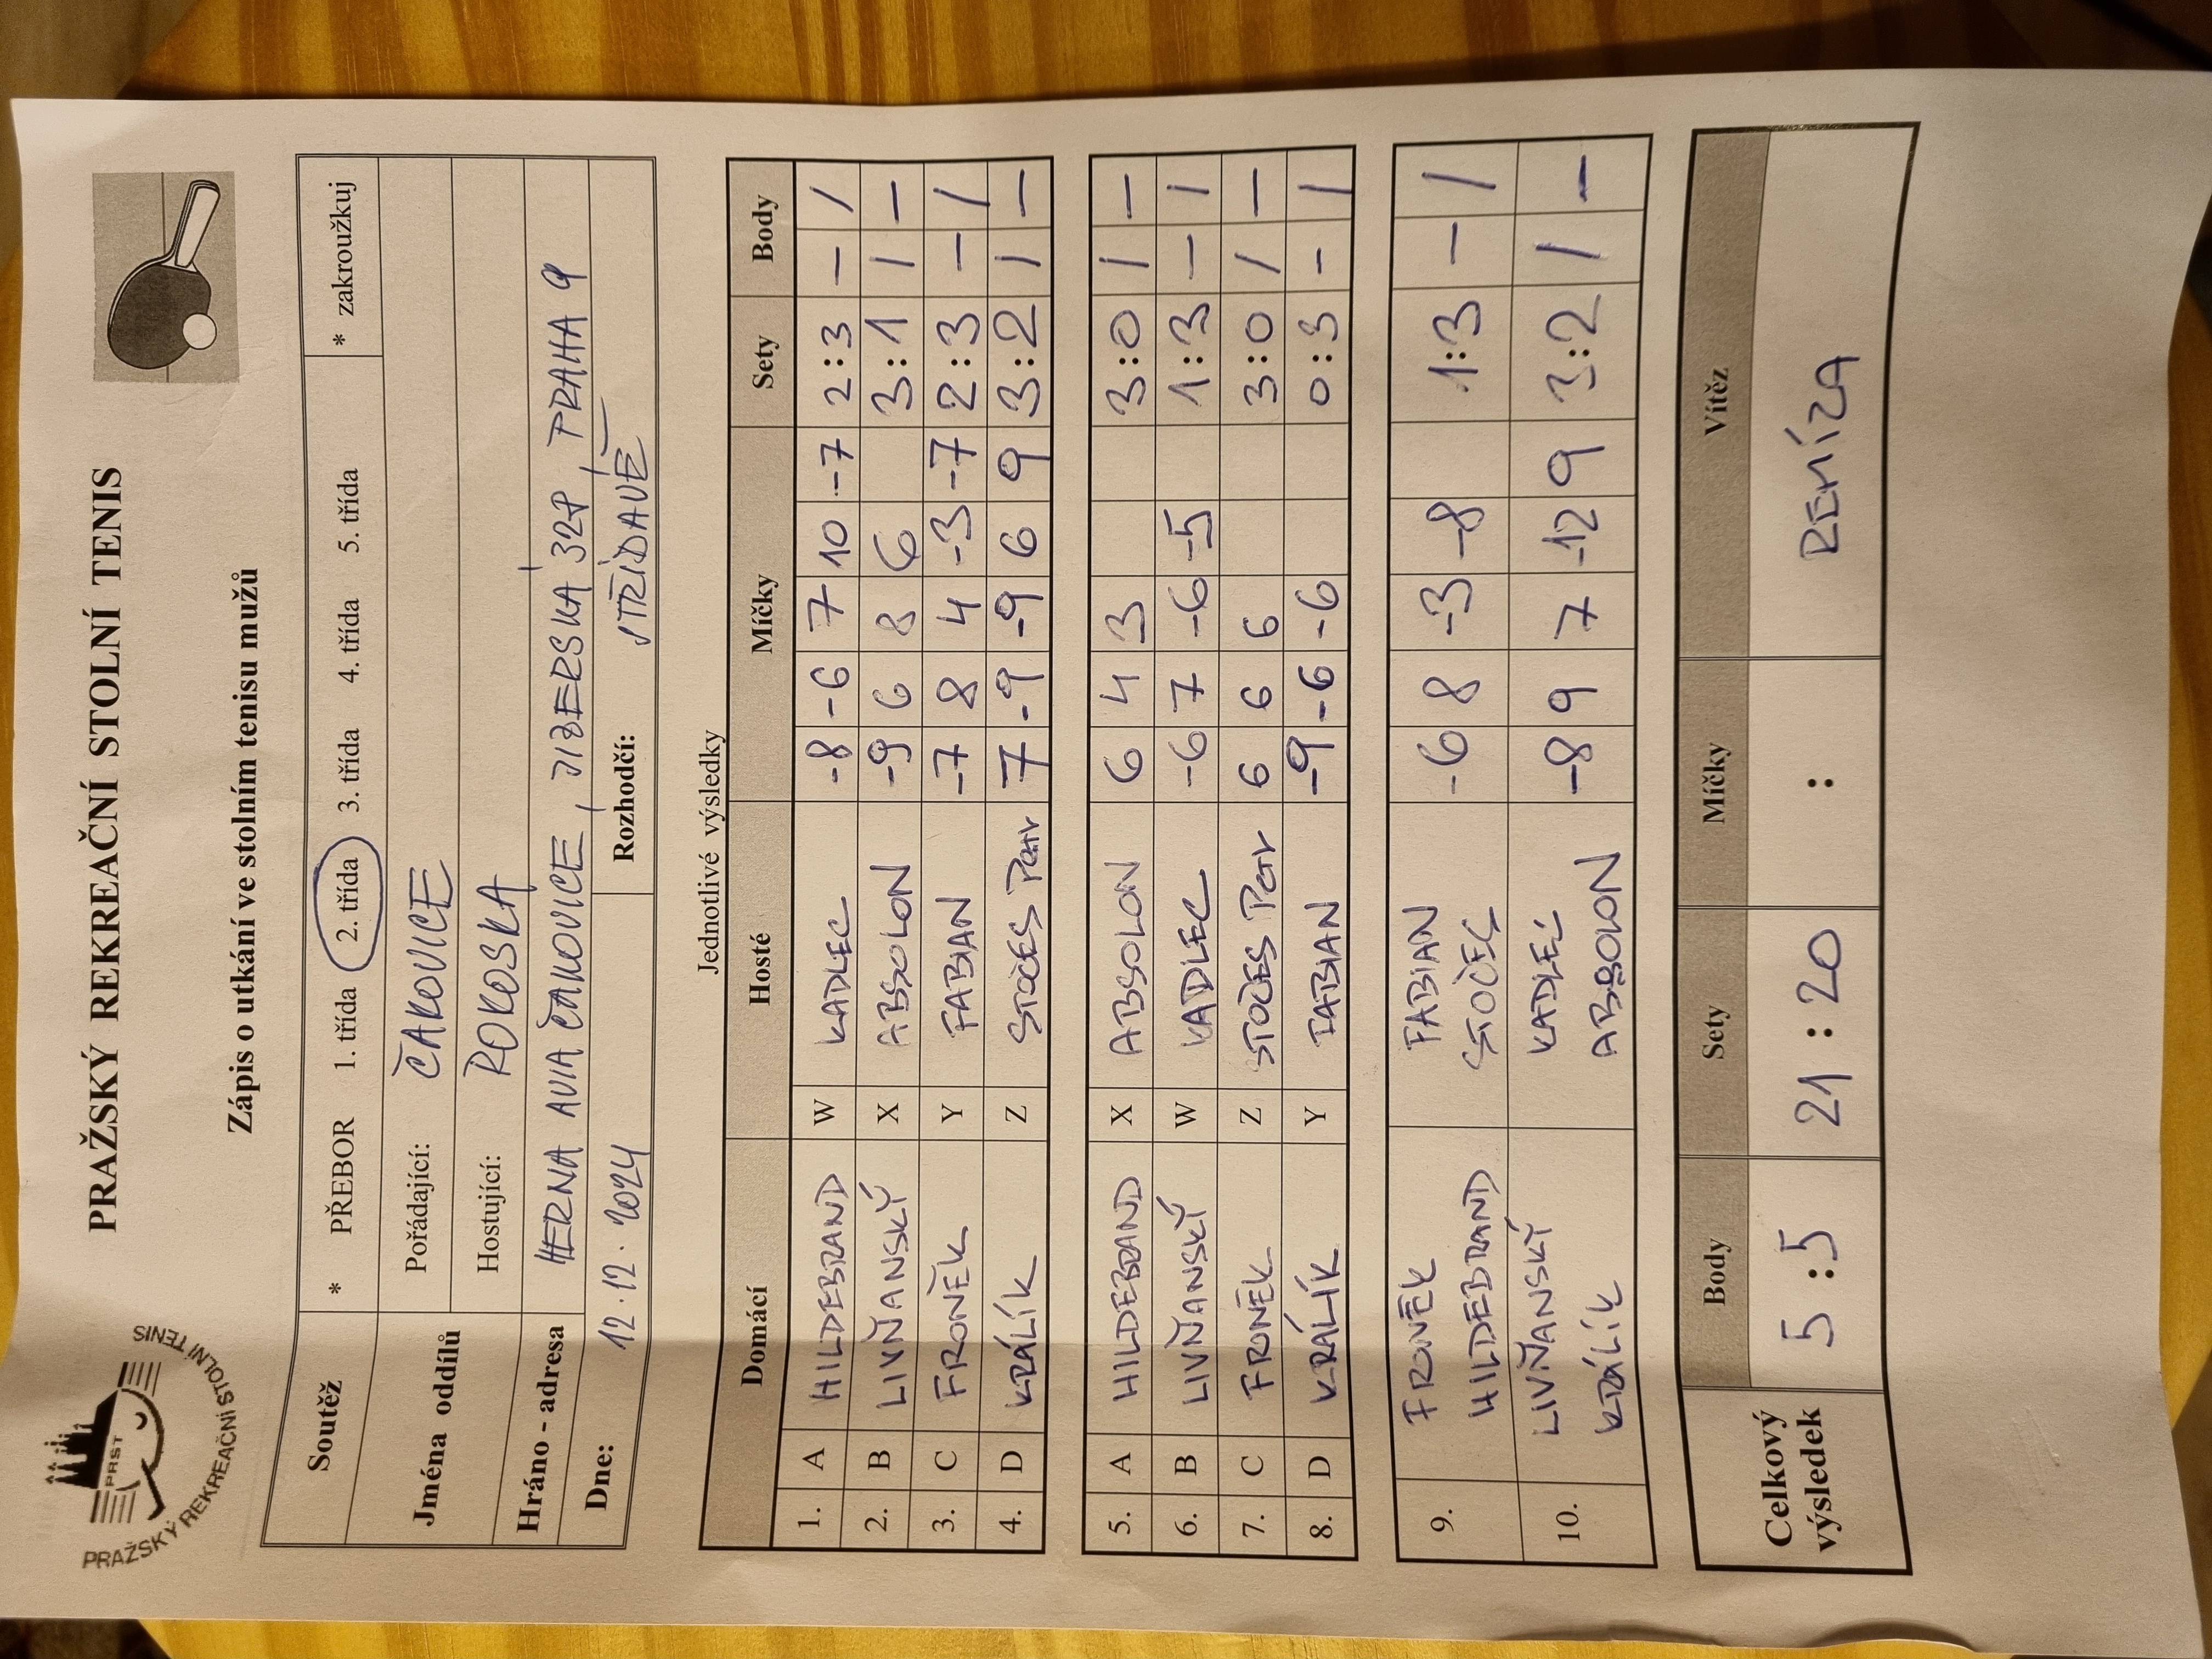 PRAŽSKÝ REKREAČNÍ STOLNÍ TENIS
PRST
PRAŽSKÝ REKREAČNÍ STOLNÍ TENIS
Zápis o utkání ve stolním tenisu mužů
Soutěž * PŘEBOR 1. třída 2. třída 3. třída 4. třída 5. třída * zakroužkuj
Jména oddílů Pořádající: ČAKOVICE
Hostující: POKOSKA
Hráno - adresa HERNA AVIA ČAKOVICE, JIZERSKÁ 328, PRAHA 9
Dne: 12.12.2024 Rozhodčí: STŘÍDAVĚ
Jednotlivé výsledky
Domácí Hosté Míčky Sety Body
1. A HILDEBRAND W KADLEC -8 -6 7 10 -7 2:3 – /
2. B LIVŇANSKÝ X ABSOLON -9 6 8 6 3:1 / –
3. C FRONĚK Y FABIAN -7 8 4 -3 -7 2:3 – /
4. D KRÁLÍK Z STOČES Petr 7 -9 -9 6 9 3:2 / –
5. A HILDEBRAND X ABSOLON 6 4 3 3:0 / –
6. B LIVŇANSKÝ W KADLEC -6 7 -6 -5 1:3 – /
7. C FRONĚK Z STOČES Petr 6 6 6 3:0 / –
8. D KRÁLÍK Y FABIAN -9 -6 -6 0:3 – /
9. FRONĚK FABIAN -6 8 -3 -8 1:3 – /
HILDEBRAND STOČES
10. LIVŇANSKÝ KADLEC -8 9 7 -12 9 3:2 / –
KRÁLÍK ABSOLON
Celkový výsledek Body Sety Míčky Vítěz
5:5 21:20 : REMÍZA